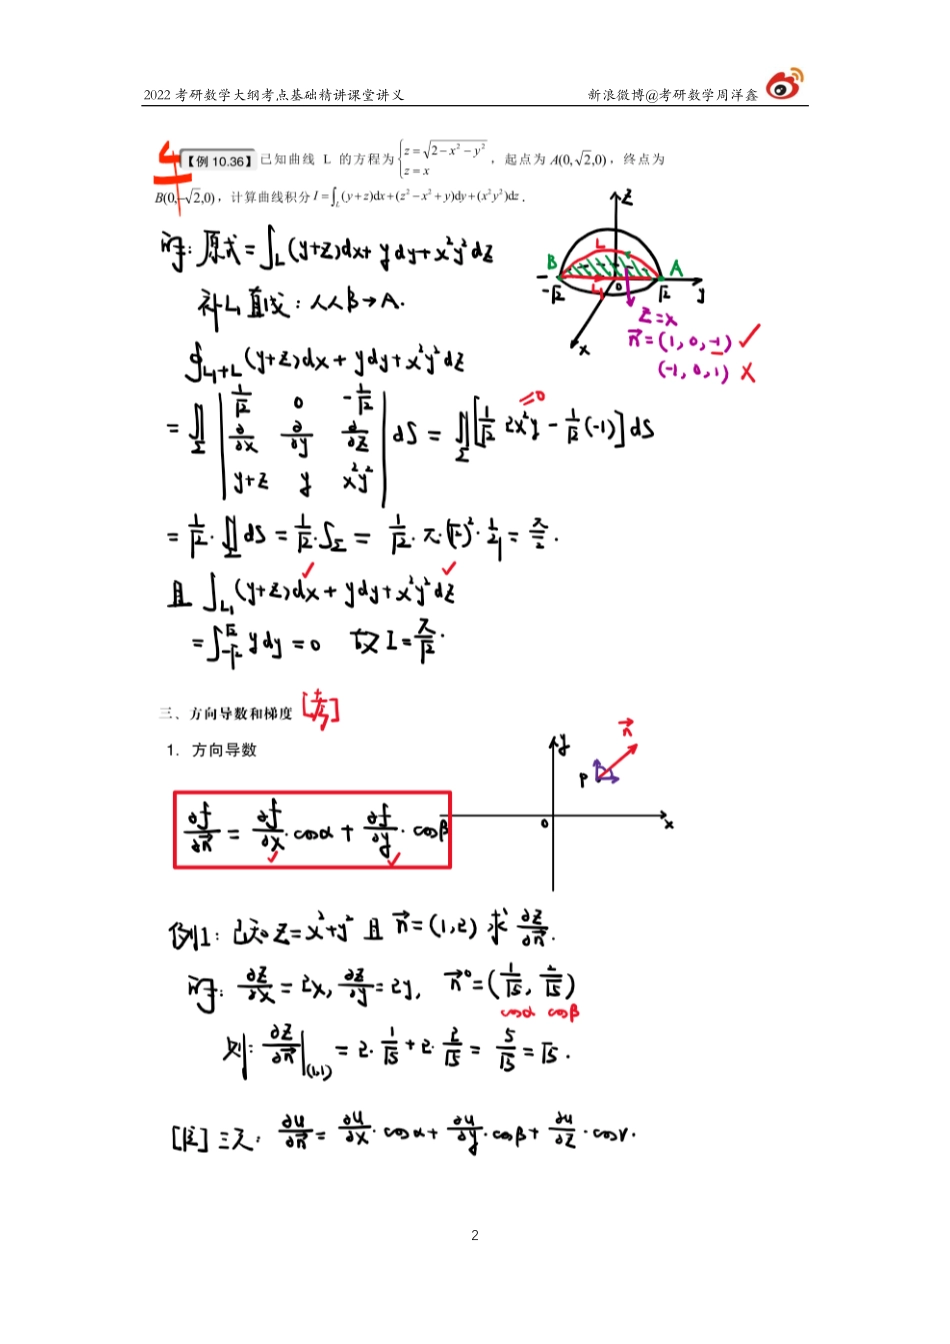 2022 考研数学大纲考点基础精讲课堂讲义 新浪微博@考研数学周洋鑫
【例 10.36】已知曲线 L 的方程为 { z = √(2−x²−y²) , z = x ，起点为 A(0, √2,0)，终点为
B(0,−√2,0)，计算曲线积分 I = ∫_L (y+z)dx+(z²−x²+y)dy+(x²y²)dz .
解: 原式 = ∫_L (y+z)dx + ydy + x²y²dz
补L₁直线: 从B→A.
z
L
B
A
L₁
−√2
0
√2
y
x
z=x
n⃗=(1,0,−1) ✓
(−1,0,1) ×
∮_{L₁+L} (y+z)dx + ydy + x²y²dz
= ∬_Σ | 1/√2 0 −1/√2 ; ∂/∂x ∂/∂y ∂/∂z ; y+z y x²y² | dS = ∬_Σ [1/√2 2x²y − 1/√2 (−1)] dS
=0
= 1/√2 · ∬_Σ dS = 1/√2 · S_Σ = 1/√2 · π·(√2)² · 1/2 = π/√2 .
且 ∫_{L₁} (y+z)dx + ydy + x²y²dz
= ∫_{−√2}^{√2} ydy = 0 故 I = π/√2 .
三、方向导数和梯度 [考]
1. 方向导数
y
P
n⃗
0
x
∂f/∂n⃗ = ∂f/∂x · cosα + ∂f/∂y · cosβ
例1: 已知 z=x²+y² 且 n⃗=(1,2) 求 ∂z/∂n⃗ .
解: ∂z/∂x = 2x, ∂z/∂y = 2y, n⃗° = (1/√5, 2/√5)
cosα cosβ
则: ∂z/∂n⃗ |(1,1) = 2· 1/√5 + 2· 2/√5 = 6/√5
[注] 三元: ∂u/∂n⃗ = ∂u/∂x · cosα + ∂u/∂y · cosβ + ∂u/∂z · cosγ.
2